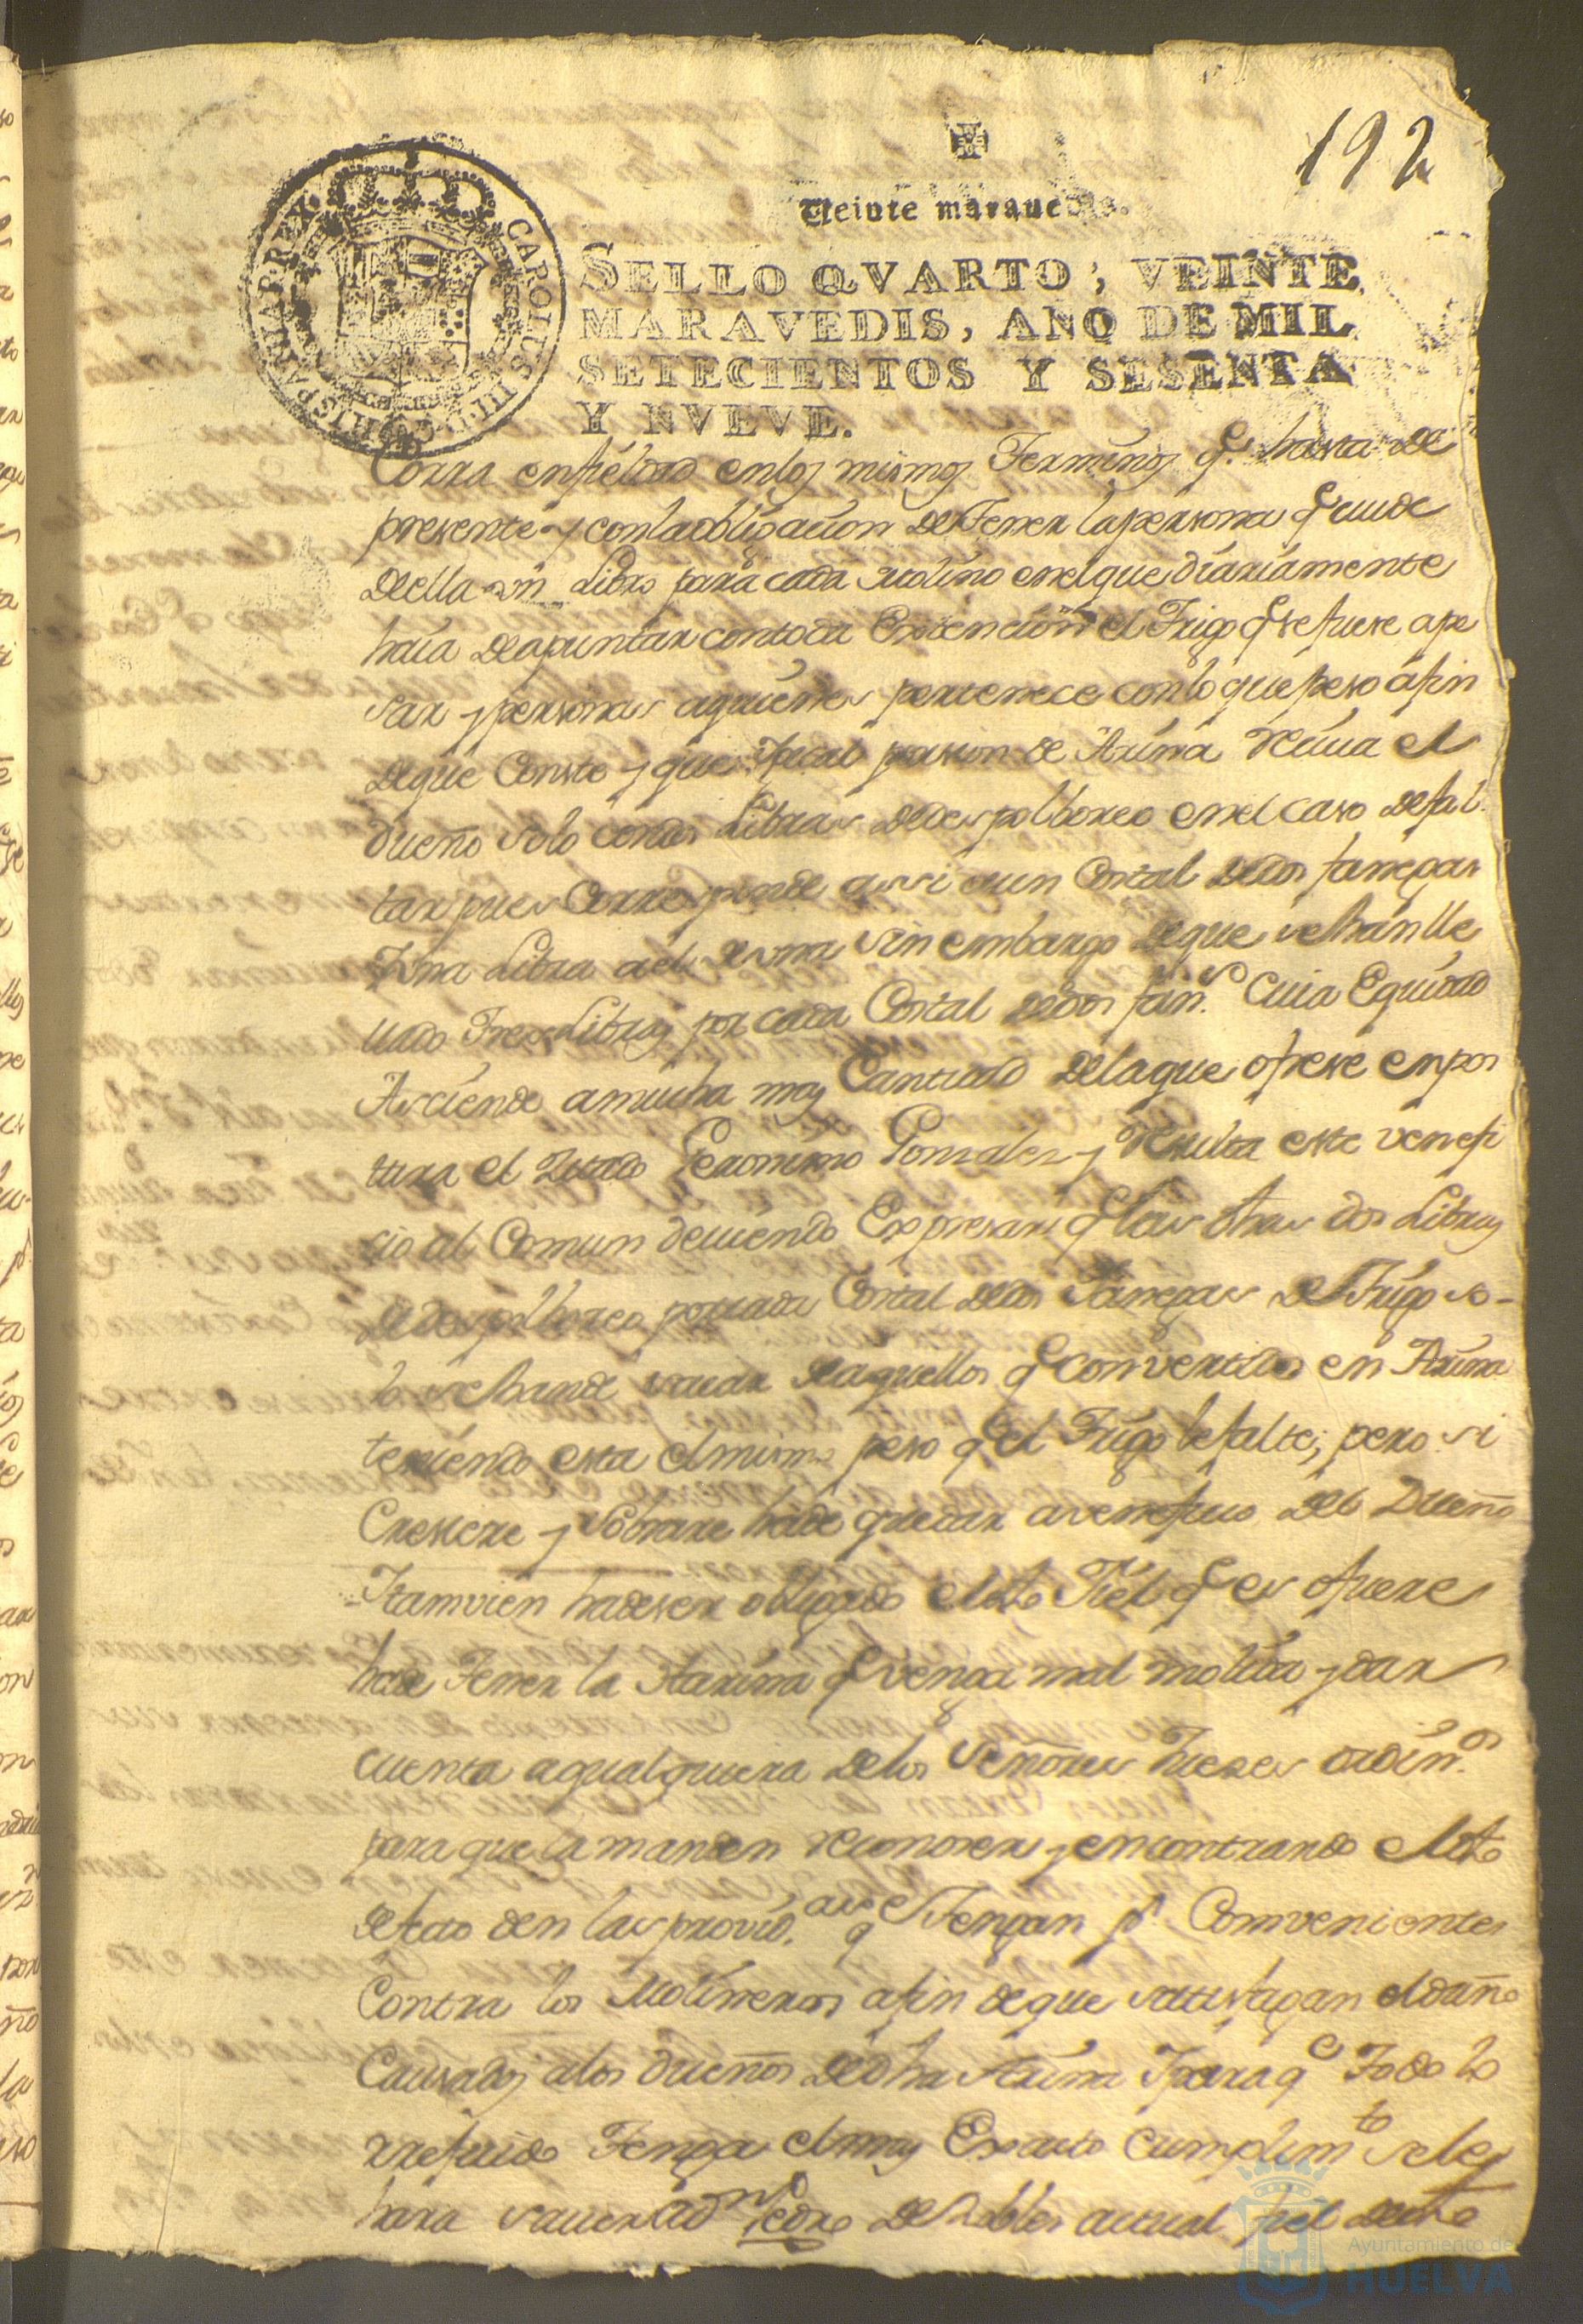 192
Veinte maravedis.
CAROLUS III D.G. HISPANIAR. REX
SELLO QVARTO, VEINTE
MARAVEDIS, AÑO DE MIL
SETECIENTOS Y SESENTA
Y NVEVE.
Corra en fieldad en los mismos Terminos q.e hasta de
presente y con la obligacion de Tener la persona q.e cuide
de ella un Libro para cada Molino en el que diariamente
haia de apuntar con toda Extencion el Trigo q.e se fuese a pe
sar y personas a quienes pertenece con lo que peso a fin
de que Conste y que tocal porsion de Arina reciua el
dueño solo con dos Libras de despolboreo en el caso de fal
tar pues Corresponde assi a un Costal de dos fanegas
Una Libra sin embargo de que se han lle
uado Tres Libras por cada Costal de dos fan.s Cuia Equidad
Asciende a mucha mas Cantidad de la que ofrese en pos
tura el Zitado Geronimo Gonzales y resulta este venefi
cio al Comun deviendo Expresar q.e las otras dos Libras
de despolboreo por cada Costal de dos Fanegas de Trigo so-
lo se han de sacar de aquellos q.e convertidos en Arina
teniendo esta el mismo peso q.e el Trigo le falte; pero si
Cresiere y Sobrare ha de quedar a venefisio del Dueño
Y tamvien ha de ser obligado el dho Fiel q.e es o fuere
ha de Tener la Harina q.e venga mal molida y dar
cuenta a qualquiera de los Señores Jueses ordin.os
para que la manden reconoser y encontrando el dho
defecto den las provid.as q.e Tengan p.r Convenientes
Contra los Molineros a fin de que satisfagan el daño
Causado a los dueños de dha Arina Y para q.e Todo lo
rreferido Tenga el mas Exacto Cumplim.to se le
hara saver a D.n Pedro de Robles actual fiel de dho
Ayuntamiento de
HUELVA